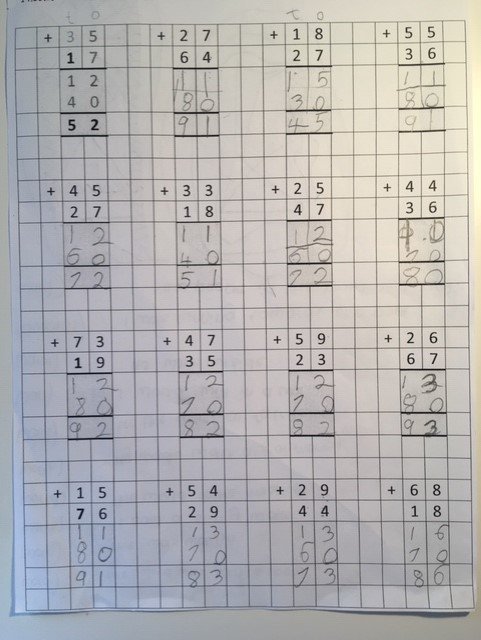 t o t o
+ 3 5 + 2 7 + 1 8 + 5 5
1 7 6 4 2 7 3 6
1 2 1 1 1 5 1 1
4 0 8 0 3 0 8 0
5 2 9 1 4 5 9 1
+ 4 5 + 3 3 + 2 5 + 4 4
2 7 1 8 4 7 3 6
1 2 1 1 1 2 1 0
6 0 4 0 6 0 7 0
7 2 5 1 7 2 8 0
+ 7 3 + 4 7 + 5 9 + 2 6
1 9 3 5 2 3 6 7
1 2 1 2 1 2 1 3
8 0 7 0 7 0 8 0
9 2 8 2 8 2 9 3
+ 1 5 + 5 4 + 2 9 + 6 8
7 6 2 9 4 4 1 8
1 1 1 3 1 3 1 6
8 0 7 0 6 0 7 0
9 1 8 3 7 3 8 6